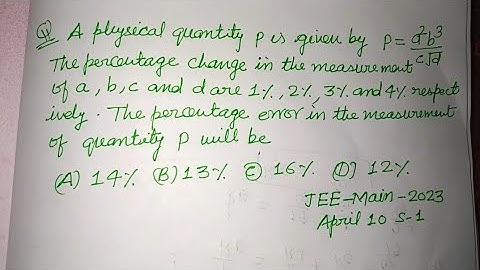 Q) A physical quantity P is given by P = a²b³/c√d
The percentage change in the measurement
of a, b, c and d are 1%, 2%, 3% and 4% respect
ively. The percentage error in the measurement
of quantity P will be
(A) 14% (B) 13% (C) 16% (D) 12%
JEE-Main-2023
April 10 S-1